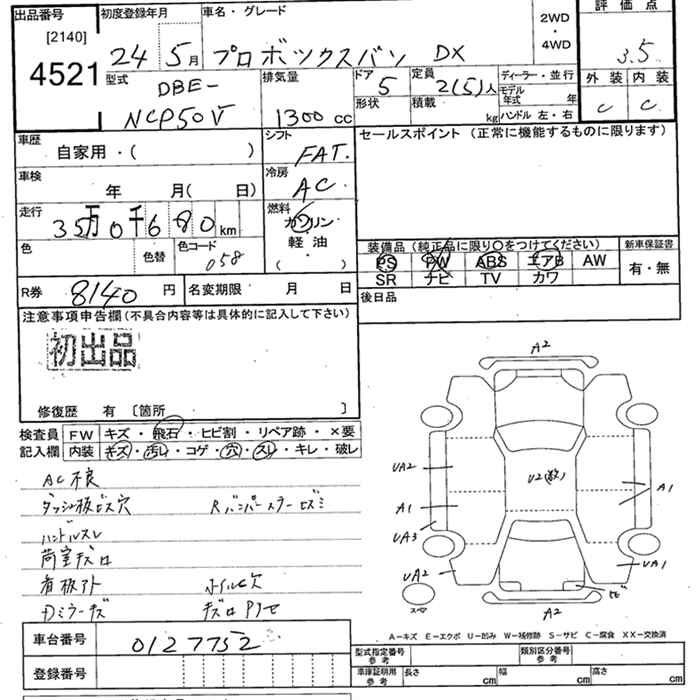 出品番号 初度登録年月 車名・グレード 2WD・4WD 評価点
[2140]
4521
24 5月 プロボックスバン DX 3.5
型式 DBE-NCP50V 排気量 1300cc ドア 5 定員 2(5)人 ディーラー・並行
形状 積載 kg モデル年式 年 ハンドル 左・右
外装 内装
C C
車歴 自家用・( ) シフト FAT.
セールスポイント(正常に機能するものに限ります)
車検 年 月( 日) 冷房 AC.
走行 35万0千680km 燃料 ガソリン
軽油
( )
色 色替 色コード 058
装備品(純正品に限り○をつけてください) 新車保証書
PS PW ABS エアB AW 有・無
SR ナビ TV カワ
R券 8140円 名変期限 月 日
後日品
注意事項申告欄(不具合内容等は具体的に記入して下さい)
初出品
修復歴 有 〔箇所 〕
検査員記入欄 FW キズ・飛石・ヒビ割・リペア跡・×要
内装 キズ・汚レ・コゲ・穴・スレ・キレ・破レ
AC不良
ダッシュ板ビス穴
ハンドルスレ
荷室キズ凹
看板アト ホイルC欠
Dミラーキズ
A2
UA2
A1
UA3
UA2
U2(数)
A1
UA1
スペア
A2
A-キズ E-エクボ U-凹み W-補修跡 S-サビ C-腐食 XX-交換済
車台番号 0127752
登録番号
型式指定番号 参考 類別区分番号 参考
車庫証明用 参考 長さ cm 幅 cm 高さ cm